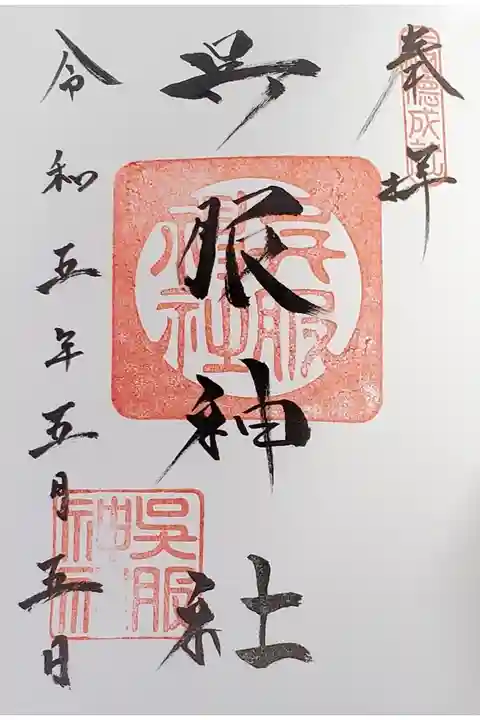 奉拝
呉服神社
令和五年五月五日
呉服
神社